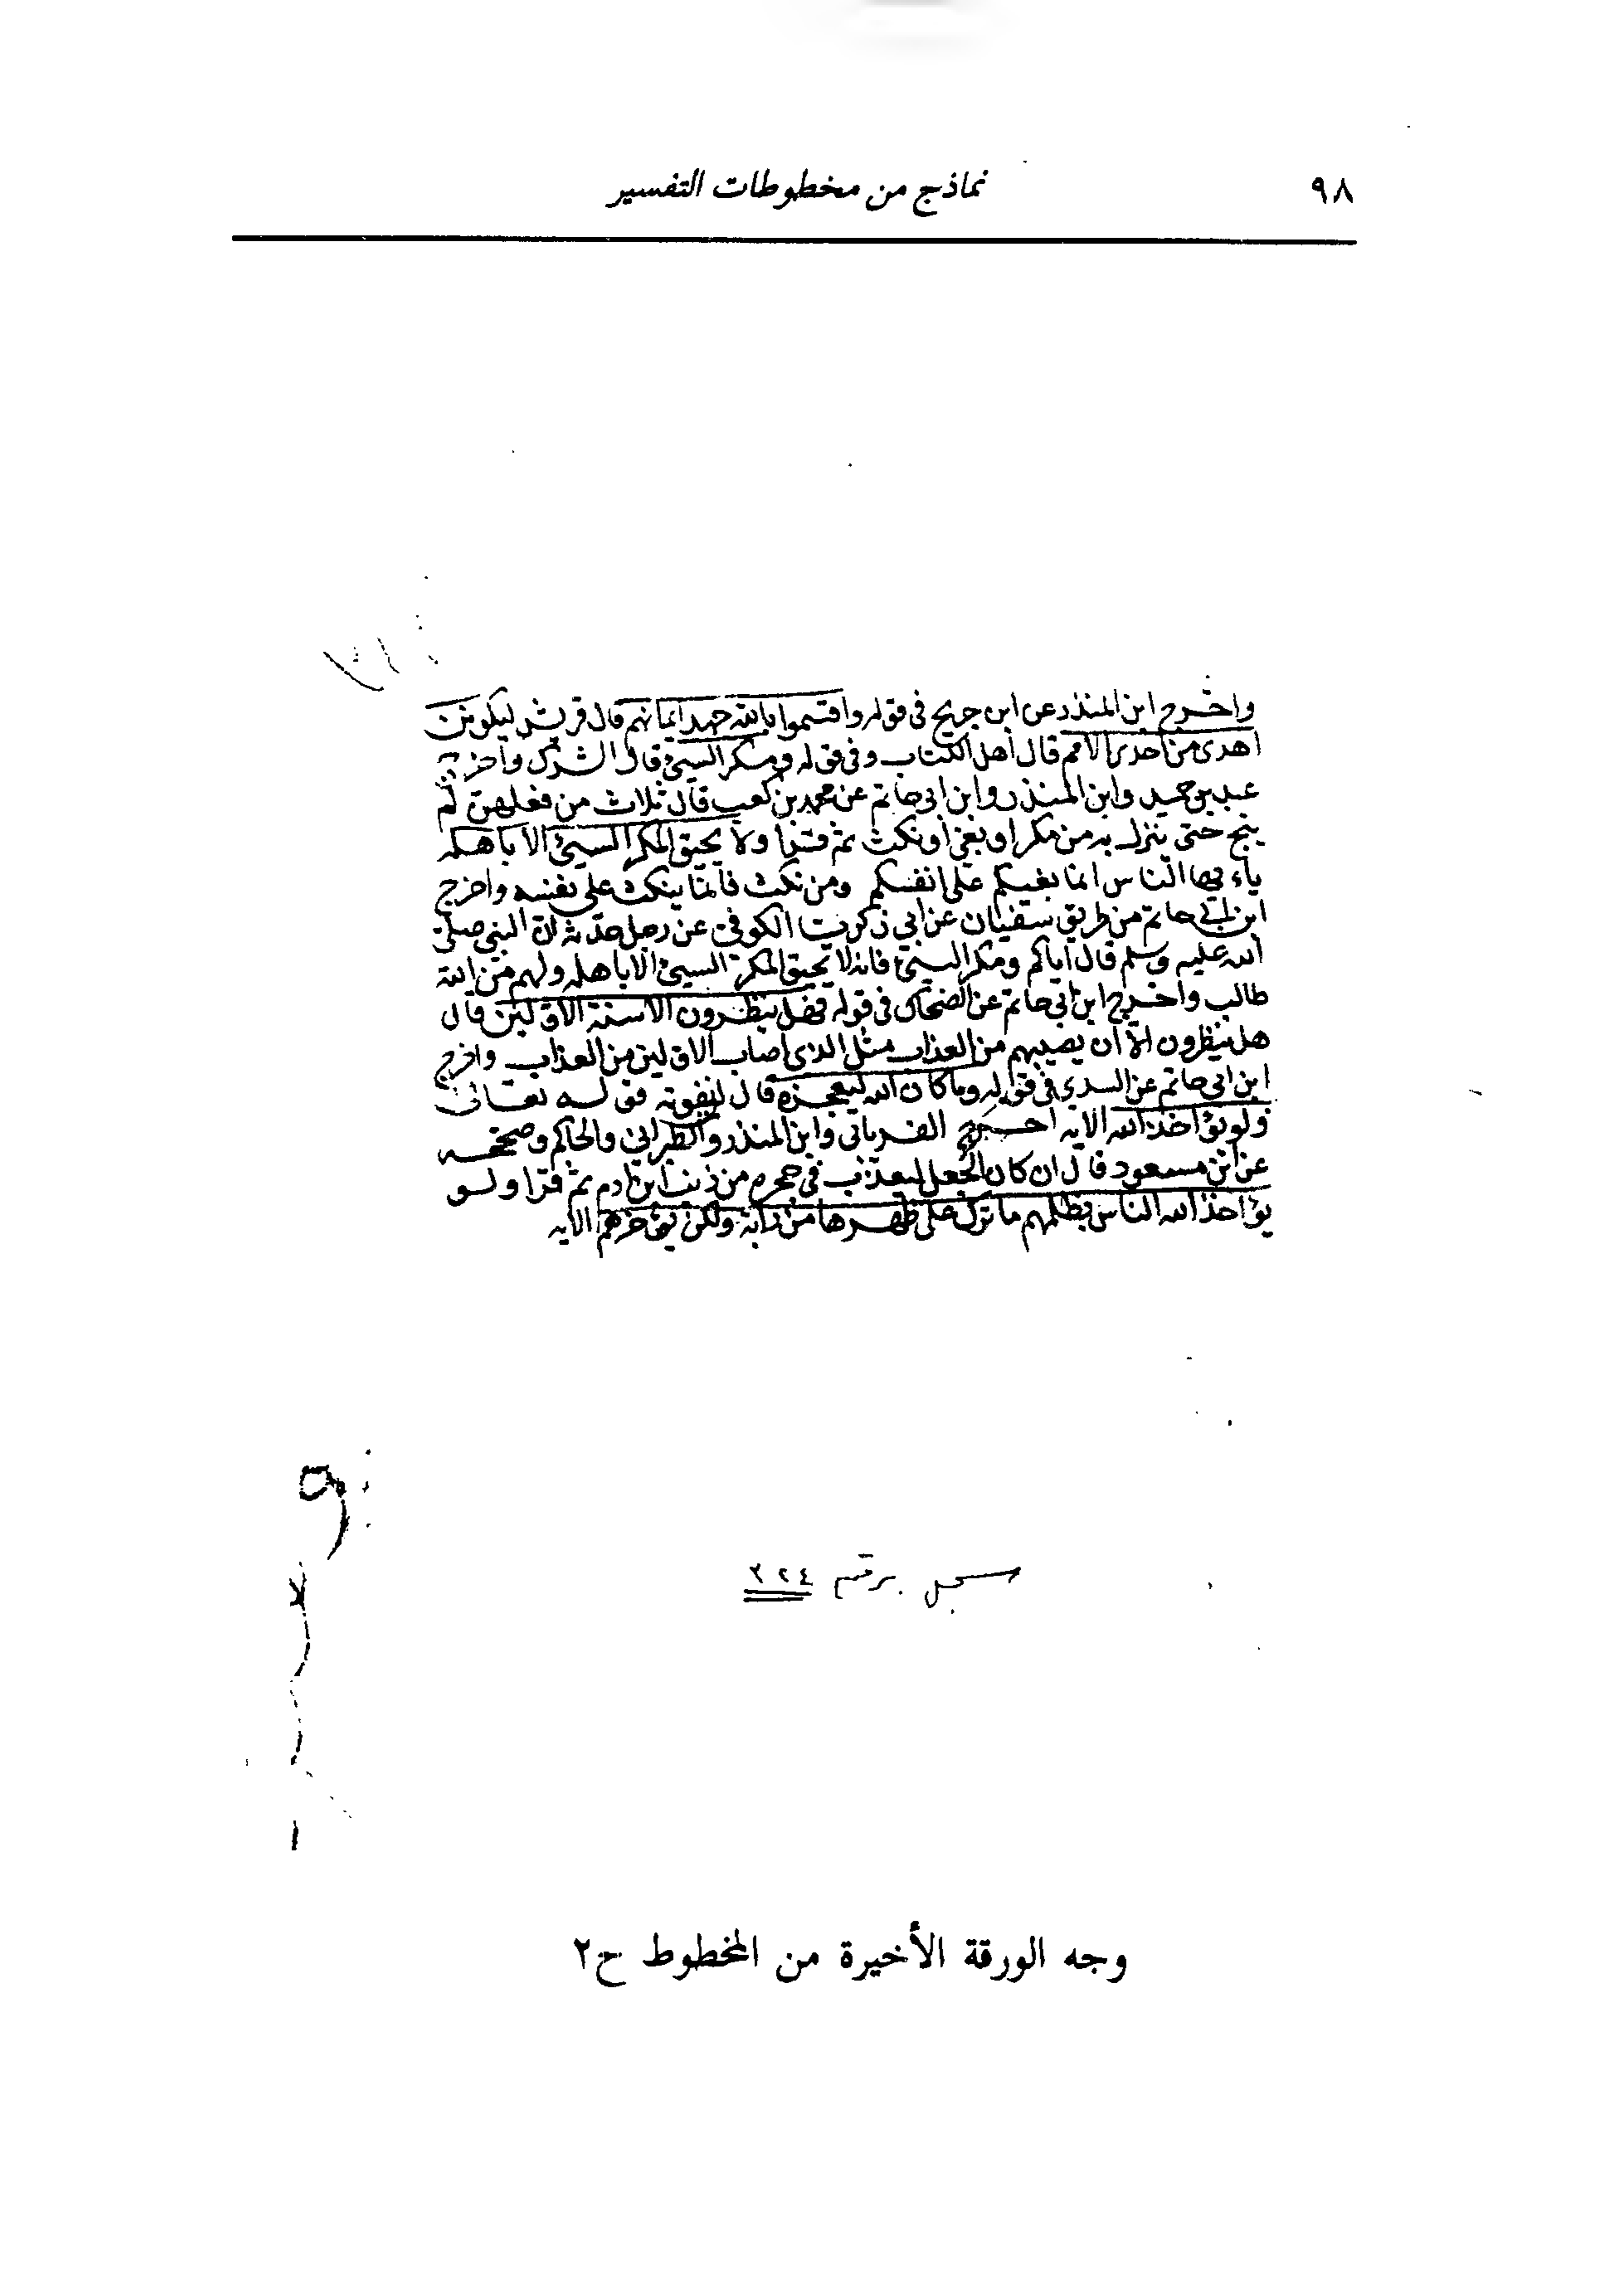 ٩٨
نماذج من مخطوطات التفسير
واخرج ابن المنذر عن ابن جريج في قوله واقسموا بالله جهد ايمانهم قال قريش ليكونن
اهدى من احدى الامم قال اهل الكتاب وفي قوله ومكر السيئ قال الشرك واخرج
عبد بن حميد وابن المنذر وابن ابي حاتم عن محمد بن كعب قال ثلاث من فعلهن لم
ينج حتى ينزل به من مكر او بغي او نكث ثم قرا ولا يحيق المكر السيئ الا باهله
ياءيها الناس انما بغيكم على انفسكم ومن نكث فانما ينكث على نفسه واخرج
ابن ابي حاتم من طريق سفيان عن ابي زكريا الكوفي عن رجل حدثه ان النبي صلى
الله عليه وسلم قال اياكم ومكر السيئ فانه لا يحيق المكر السيئ الا باهله ولهم من الله
طالب واخرج ابن ابي حاتم عن الضحاك في قوله فهل ينظرون الا سنة الاولين قال
هل ينظرون الا ان يصيبهم من العذاب مثل الذي اصاب الاولين من العذاب واخرج
ابن ابي حاتم عن السدي في قوله وما كان الله ليعجزه قال ليفوته قوله تعالى
ولو يؤاخذ الله الايه اخرج الفريابي وابن المنذر والطبراني والحاكم وصححه
عن ابن مسعود قال ان كان الجعل ليعذب في جحره من ذنب ابن ادم ثم قرا ولو
يؤاخذ الله الناس بظلمهم ما ترك على ظهرها من دابة ولكن يؤخرهم الايه
مسجل برقم ٢٢٤
وجه الورقة الأخيرة من المخطوط ح٢